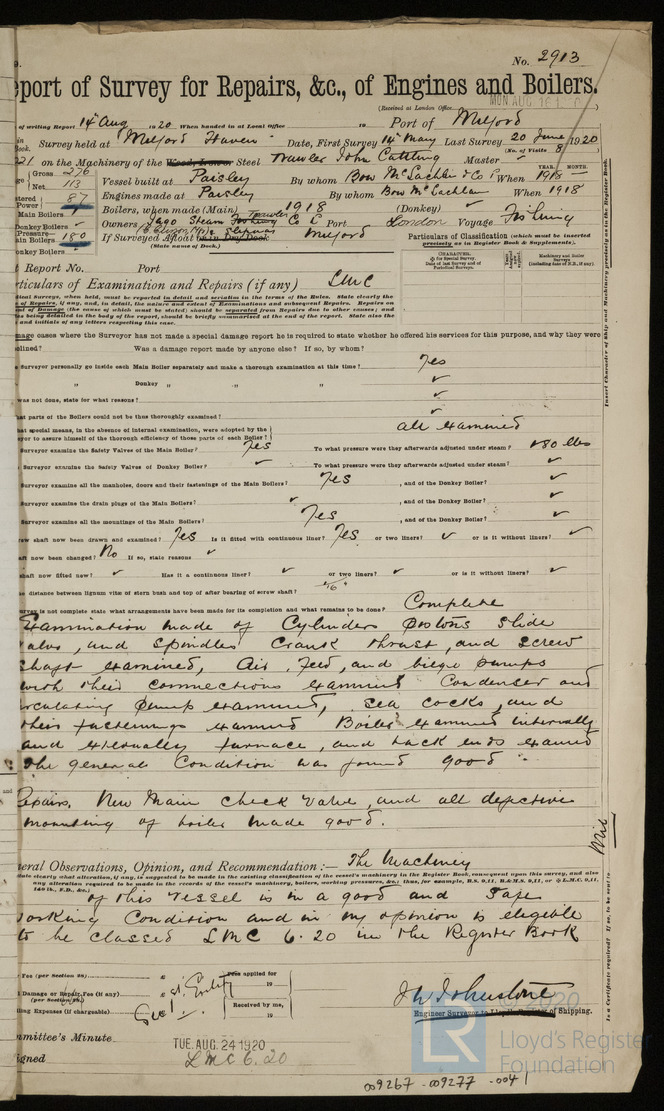 No. 2913
eport of Survey for Repairs, &c., of Engines and Boilers.
MON. AUG. 16 1920
(Received at London Office
of writing Report 14th Aug 1920 When handed in at Local Office 19 Port of Milford
Survey held at Milford Haven Date, First Survey 14th May Last Survey 20 June 1920
(No. of Visits 8)
21 on the Machinery of the Wood, Iron or Steel Trawler John Cattling Master
Gross 276
Net 113
Vessel built at Paisley By whom Bow McLachlan & Co Ld When 1918
YEAR. MONTH.
Engines made at Paisley By whom Bow McLachlan When 1918
Power 87
Main Boilers
Boilers, when made (Main) 1918 (Donkey)
Owners Jago Steam Trawler Co Ld Port London Voyage Fishing
Pressure—
ain Boilers 180
onkey Boilers
If Surveyed Afloat or in Dry Dock Milford
(State name of Dock.)
Particulars of Classification (which must be inserted
precisely as in Register Book & Supplements).
CHARACTER.
Machinery and Boiler Surveys
t Report No. Port
rticulars of Examination and Repairs (if any) LMC
mage cases where the Surveyor has not made a special damage report he is required to state whether he offered his services for this purpose, and why they were
lined? Was a damage report made by anyone else? If so, by whom?
e Surveyor personally go inside each Main Boiler separately and make a thorough examination at this time? Yes
„ Donkey „ „ „
was not done, state for what reasons?
at parts of the Boilers could not be thoroughly examined?
at special means, in the absence of internal examination, were adopted by the
yor to assure himself of the thorough efficiency of those parts of each Boiler? all examined
Surveyor examine the Safety Valves of the Main Boiler? Yes To what pressure were they afterwards adjusted under steam? 180 lbs
Surveyor examine the Safety Valves of Donkey Boiler? To what pressure were they afterwards adjusted under steam?
Surveyor examine all the manholes, doors and their fastenings of the Main Boilers? Yes , and of the Donkey Boiler?
Surveyor examine the drain plugs of the Main Boilers? , and of the Donkey Boiler?
Surveyor examine all the mountings of the Main Boilers? Yes , and of the Donkey Boiler?
ew shaft now been drawn and examined? Yes Is it fitted with continuous liner? Yes or two liners? or is it without liners?
aft now been changed? No If so, state reasons
shaft now fitted new? Has it a continuous liner? or two liners? or is it without liners?
e distance between lignum vitæ of stern bush and top of after bearing of screw shaft?
urvey is not complete state what arrangements have been made for its completion and what remains to be done? Complete
Examination made of Cylinders Pistons Slide
alve, and Spindles Crank thrust, and Screw
Shaft examined, Air, Feed, and bilge pumps
with their connections examined Condenser and
rculating pump examined, sea cocks, and
their fastenings examined Boiler examined internally
and externally furnace, and back ends examd
The general Condition was found good
Repairs, New Main check valve, and all defective
mounting of boiler made good.
neral Observations, Opinion, and Recommendation:— The Machinery
of this vessel is in a good and safe
orking Condition and in my opinion is eligible
to be classed LMC 6.20 in the Register Book
Fee (per Section 28) £
Fees applied for
19
Damage or Repair Fee (if any) £
(per Section 28.)
lling Expenses (if chargeable) £
Received by me,
19
J W Johnstone
Engineer Surveyor to Lloyd's Register of Shipping.
mmittee's Minute
TUE. AUG. 24 1920
igned LMC 6.20
Insert Character of Ship and Machinery precisely as in the Register Book.
Is a Certificate required? If so, to be sent to
LR
© 2020
Lloyd's Register
Foundation
009267-009277-0041